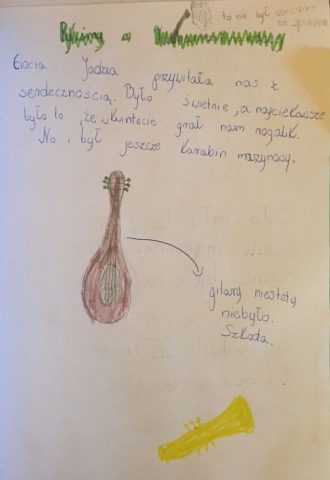 to nie był
Byliśmy w
Ciocia Jadzia przywitała nas z
serdecznością. Było świetnie, a najciekawsze
było to, że w kwintecie grał nam rogalik.
No i był jeszcze karabin maszynowy.
gitary niestety
niebyło.
Szkoda.